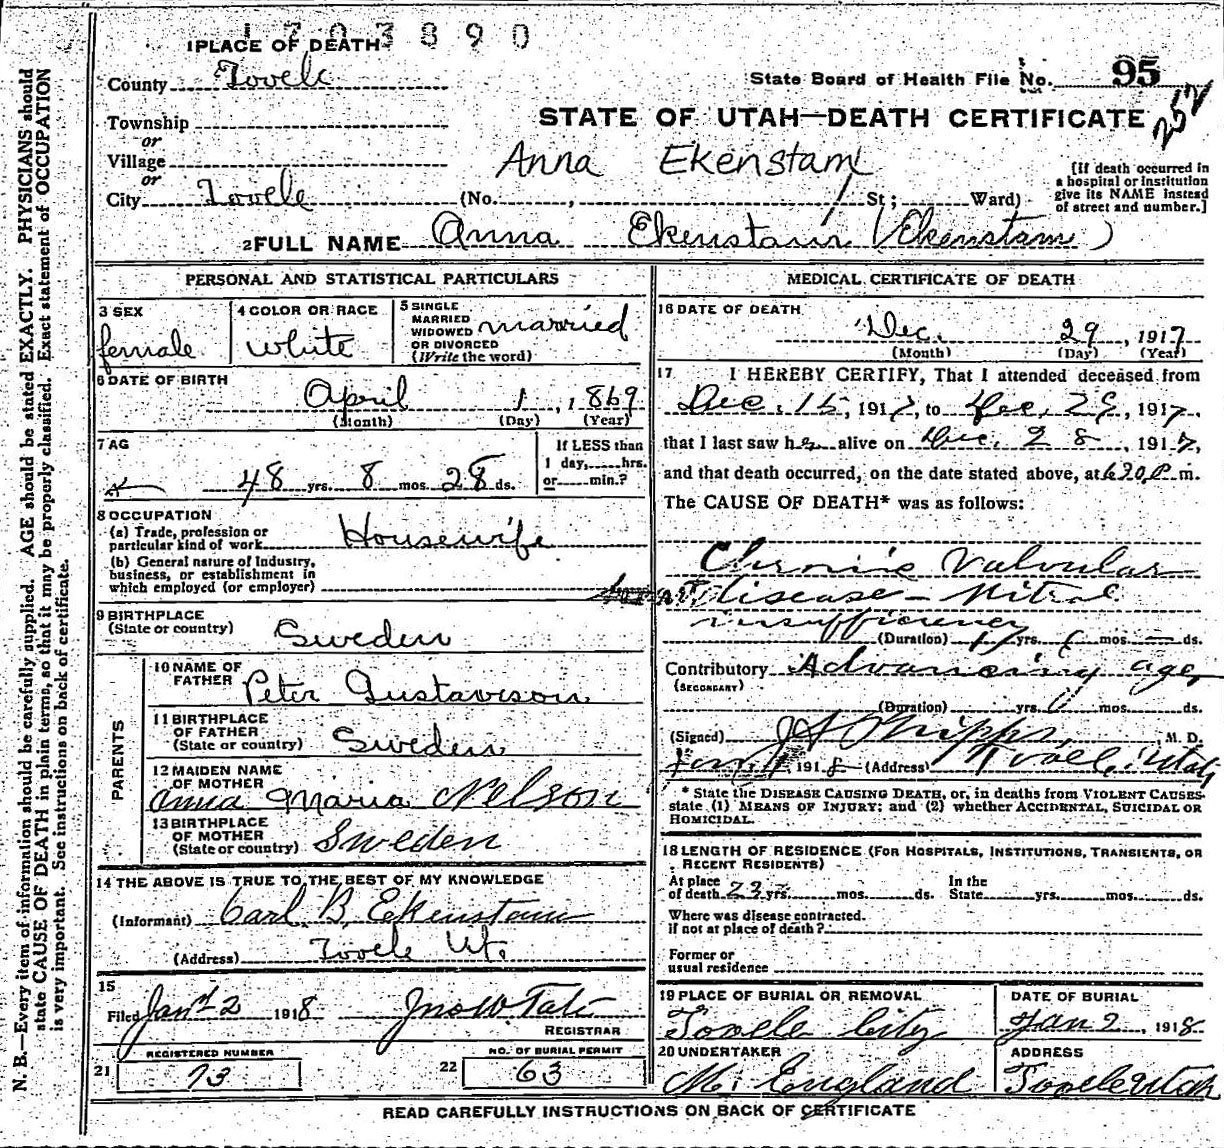 1703890
1 PLACE OF DEATH
County Tooele
State Board of Health File No. 95
Township
or
STATE OF UTAH—DEATH CERTIFICATE
252
Village
or
Anna Ekenstam
City Tooele (No. , St; Ward)
[If death occurred in
a hospital or institution
give its NAME instead
of street and number.]
2 FULL NAME Anna Ekenstam (Ekenstam)
PERSONAL AND STATISTICAL PARTICULARS
3 SEX
female
4 COLOR OR RACE
White
5 SINGLE
MARRIED
WIDOWED
OR DIVORCED
(Write the word)
married
6 DATE OF BIRTH
April 1, 1869
(Month) (Day) (Year)
7 AG
48 yrs. 8 mos. 28 ds.
If LESS than
1 day, hrs.
or min.?
8 OCCUPATION
(a) Trade, profession or
particular kind of work Housewife
(b) General nature of Industry,
business, or establishment in
which employed (or employer)
9 BIRTHPLACE
(State or country) Sweden
PARENTS
10 NAME OF
FATHER Peter Gustavison
11 BIRTHPLACE
OF FATHER
(State or country) Sweden
12 MAIDEN NAME
OF MOTHER
Anna Maria Nelson
13 BIRTHPLACE
OF MOTHER
(State or country) Sweden
14 THE ABOVE IS TRUE TO THE BEST OF MY KNOWLEDGE
(Informant) Carl B. Ekenstam
(Address) Tooele Ut.
15
Filed Jan 2 1918 Jno W Tate
REGISTRAR
REGISTERED NUMBER
21 73
NO. OF BURIAL PERMIT
22 63
MEDICAL CERTIFICATE OF DEATH
16 DATE OF DEATH
Dec. 29, 1917
(Month) (Day) (Year)
17 I HEREBY CERTIFY, That I attended deceased from
Dec. 15, 1917, to Dec. 29, 1917.
that I last saw her alive on Dec. 28, 1917,
and that death occurred, on the date stated above, at 630 P. m.
The CAUSE OF DEATH* was as follows:
Chronic Valvular
heart disease - Mitral
insufficiency
(Duration) yrs. mos. ds.
Contributory Advancing age,
(SECONDARY)
(Duration) yrs. mos. ds.
(Signed) J A Phipps, M. D.
1918 (Address) Tooele, Utah
* State the DISEASE CAUSING DEATH, or, in deaths from VIOLENT CAUSES
state (1) MEANS OF INJURY; and (2) whether ACCIDENTAL, SUICIDAL OR
HOMICIDAL.
18 LENGTH OF RESIDENCE (FOR HOSPITALS, INSTITUTIONS, TRANSIENTS, OR
RECENT RESIDENTS)
At place
of death 23 yrs. mos. ds.
In the
State yrs. mos. ds.
Where was disease contracted.
if not at place of death?
Former or
usual residence
19 PLACE OF BURIAL OR REMOVAL
Tooele City
DATE OF BURIAL
Jan 2, 1918
20 UNDERTAKER
M. England
ADDRESS
Tooele Utah
READ CAREFULLY INSTRUCTIONS ON BACK OF CERTIFICATE
N. B.—Every item of information should be carefully supplied. AGE should be stated EXACTLY. PHYSICIANS should
state CAUSE OF DEATH in plain terms, so that it may be properly classified. Exact statement of OCCUPATION
is very important. See instructions on back of certificate.